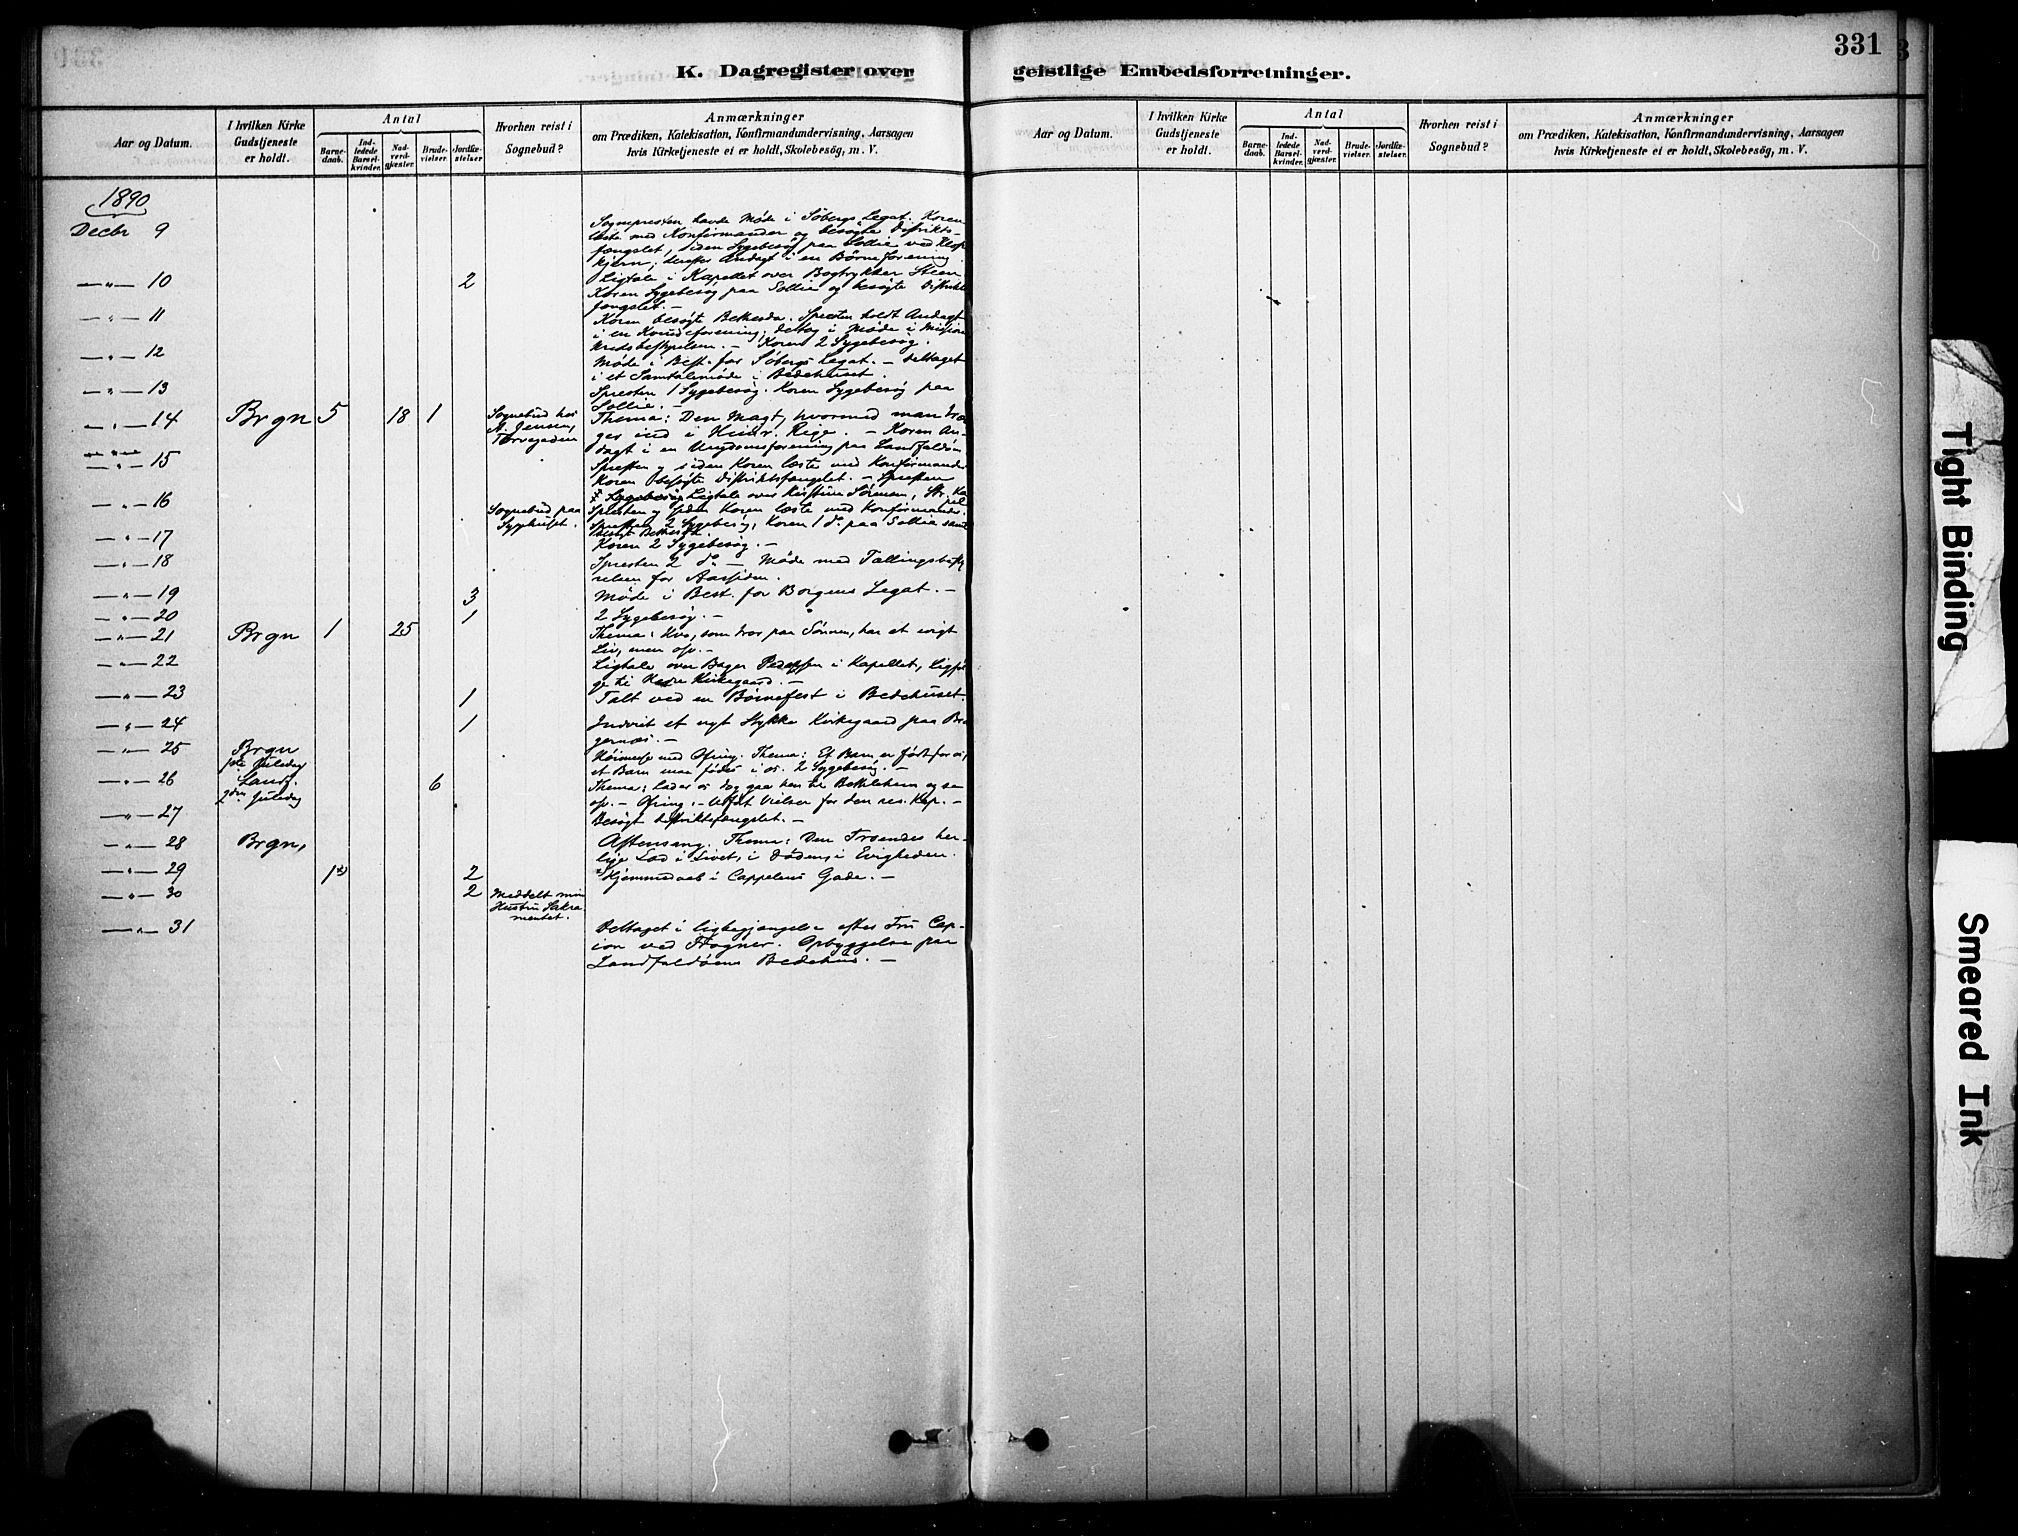 331
K. Dagregister over geistlige Embedsforretninger.
Aar og Datum.
I hvilken Kirke Gudstjeneste er holdt.
Antal
Barnedaab.
Indledede Barselkvinder.
Nadverdgjæster.
Brudevielser.
Jordfæstelser
Hvorhen reist i Sognebud?
Anmærkninger
om Prædiken, Katekisation, Konfirmandundervisning, Aarsagen
hvis Kirketjeneste ei er holdt, Skolebesög, m. V.
Aar og Datum.
I hvilken Kirke Gudstjeneste er holdt.
Antal
Barnedaab.
Indledede Barselkvinder.
Nadverdgjæster.
Brudevielser.
Jordfæstelser.
Hvorhen reist i Sognebud?
Anmærkninger
om Prædiken, Katekisation, Konfirmandundervisning, Aarsagen
hvis Kirketjeneste ei er holdt, Skolebesög, m. V.
1890
Decbr 9 Sognepresten havde Møde i Søbergs Legat. Koren
læste med Konfirmander og besøgte Distrikts-
fængslet, siden Sygebesøg paa Sollie ved
kjern, derefter Andagt i en Børneforening
—"— 10 2 Ligtale i Kapellet over Bogtrykker Steen
Koren Sygebesøg paa Sollie og besøgte Distrikts
fængslet. —
—"— 11 Koren besøgte Bethesda. Spresten holdt Andagt
i en Kvindeforening; deltog i Møde i Missions
kredsbestyrelsen. — Koren 2 Sygebesøg.
—"— 12 Møde i Best. for Søbergs Legat. — Deltaget
i et Samtalemøde i Bedehuset.
—"— 13 Spresten 1 Sygebesøg. Koren Sygebesøg paa
Sollie. —
—"— 14 Brgn 5 18 1 Sognebud hos
A. Jensen,
Torvegaden
Thema: Den Magt, hvormed man træ
ges ind i Himr. Rige. — Koren An-
dagt i en Ungdomsforening paa Landfaldøen
—"— 15 Spresten og siden Koren læste med Konfirmander
Koren besøgte Distriktsfængslet. — Spresten
Ligtale over Kristine Sørensen, Str. Ka
pel
—"— 16 Sognebud paa
Sygehuset.
Spresten og siden Koren læste med Konfirmander.
Spresten 2 Sygebesøg, Koren 1 do paa Sollie samt
besøgt Bethesda.
—"— 17 Koren 2 Sygebesøg. —
—"— 18 Spresten 2 do — Møde med Tællingsbesty
relsen for Aassiden.
—"— 19 3 Møde i Best. for Borgens Legat. —
—"— 20 1 2 Sygebesøg. —
—"— 21 Brgn 1 25 Thema: Hvo, som tror paa Sønnen, har et evigt
Liv, men osv. —
—"— 22 Ligtale over Bager Pedersen i Kapellet, Ligføl
ge til Nedre Kirkegaard. —
—"— 23 1 Talt ved en Børnefest i Bedehuset.
—"— 24 1 Indviet et nyt Stykke Kirkegaard paa Bra
gernæs. —
—"— 25 Brgn
1ste Juledag
Høimesse med Ofring. Thema: Et Barn er født for os,
et Barn maa fødes i os. 2 Sygebesøg. —
—"— 26 Landf.
2den Juledag
6 Thema: Lader os dog gaa hen til Bethlehem og se
osv. — Ofring. — Udført Vielser for den res. Kap. —
—"— 27 Besøgt Distriktsfængslet. —
—"— 28 Brgn, Aftensang. Thema: Den Troendes her-
lige Lod i Livet, i Døden, i Evigheden.
—"— 29 1*) 2 *Hjemmedaab i Cappelens Gade. —
—"— 30 2 Meddelt min
Hustru Sakra-
mentet.
—"— 31 Deltaget i Ligbegjængelse efter Fru Cap-
ion ved Frogner. Opbyggelse paa
Landfaldøens Bedehus. —
Tight Binding
Smeared Ink